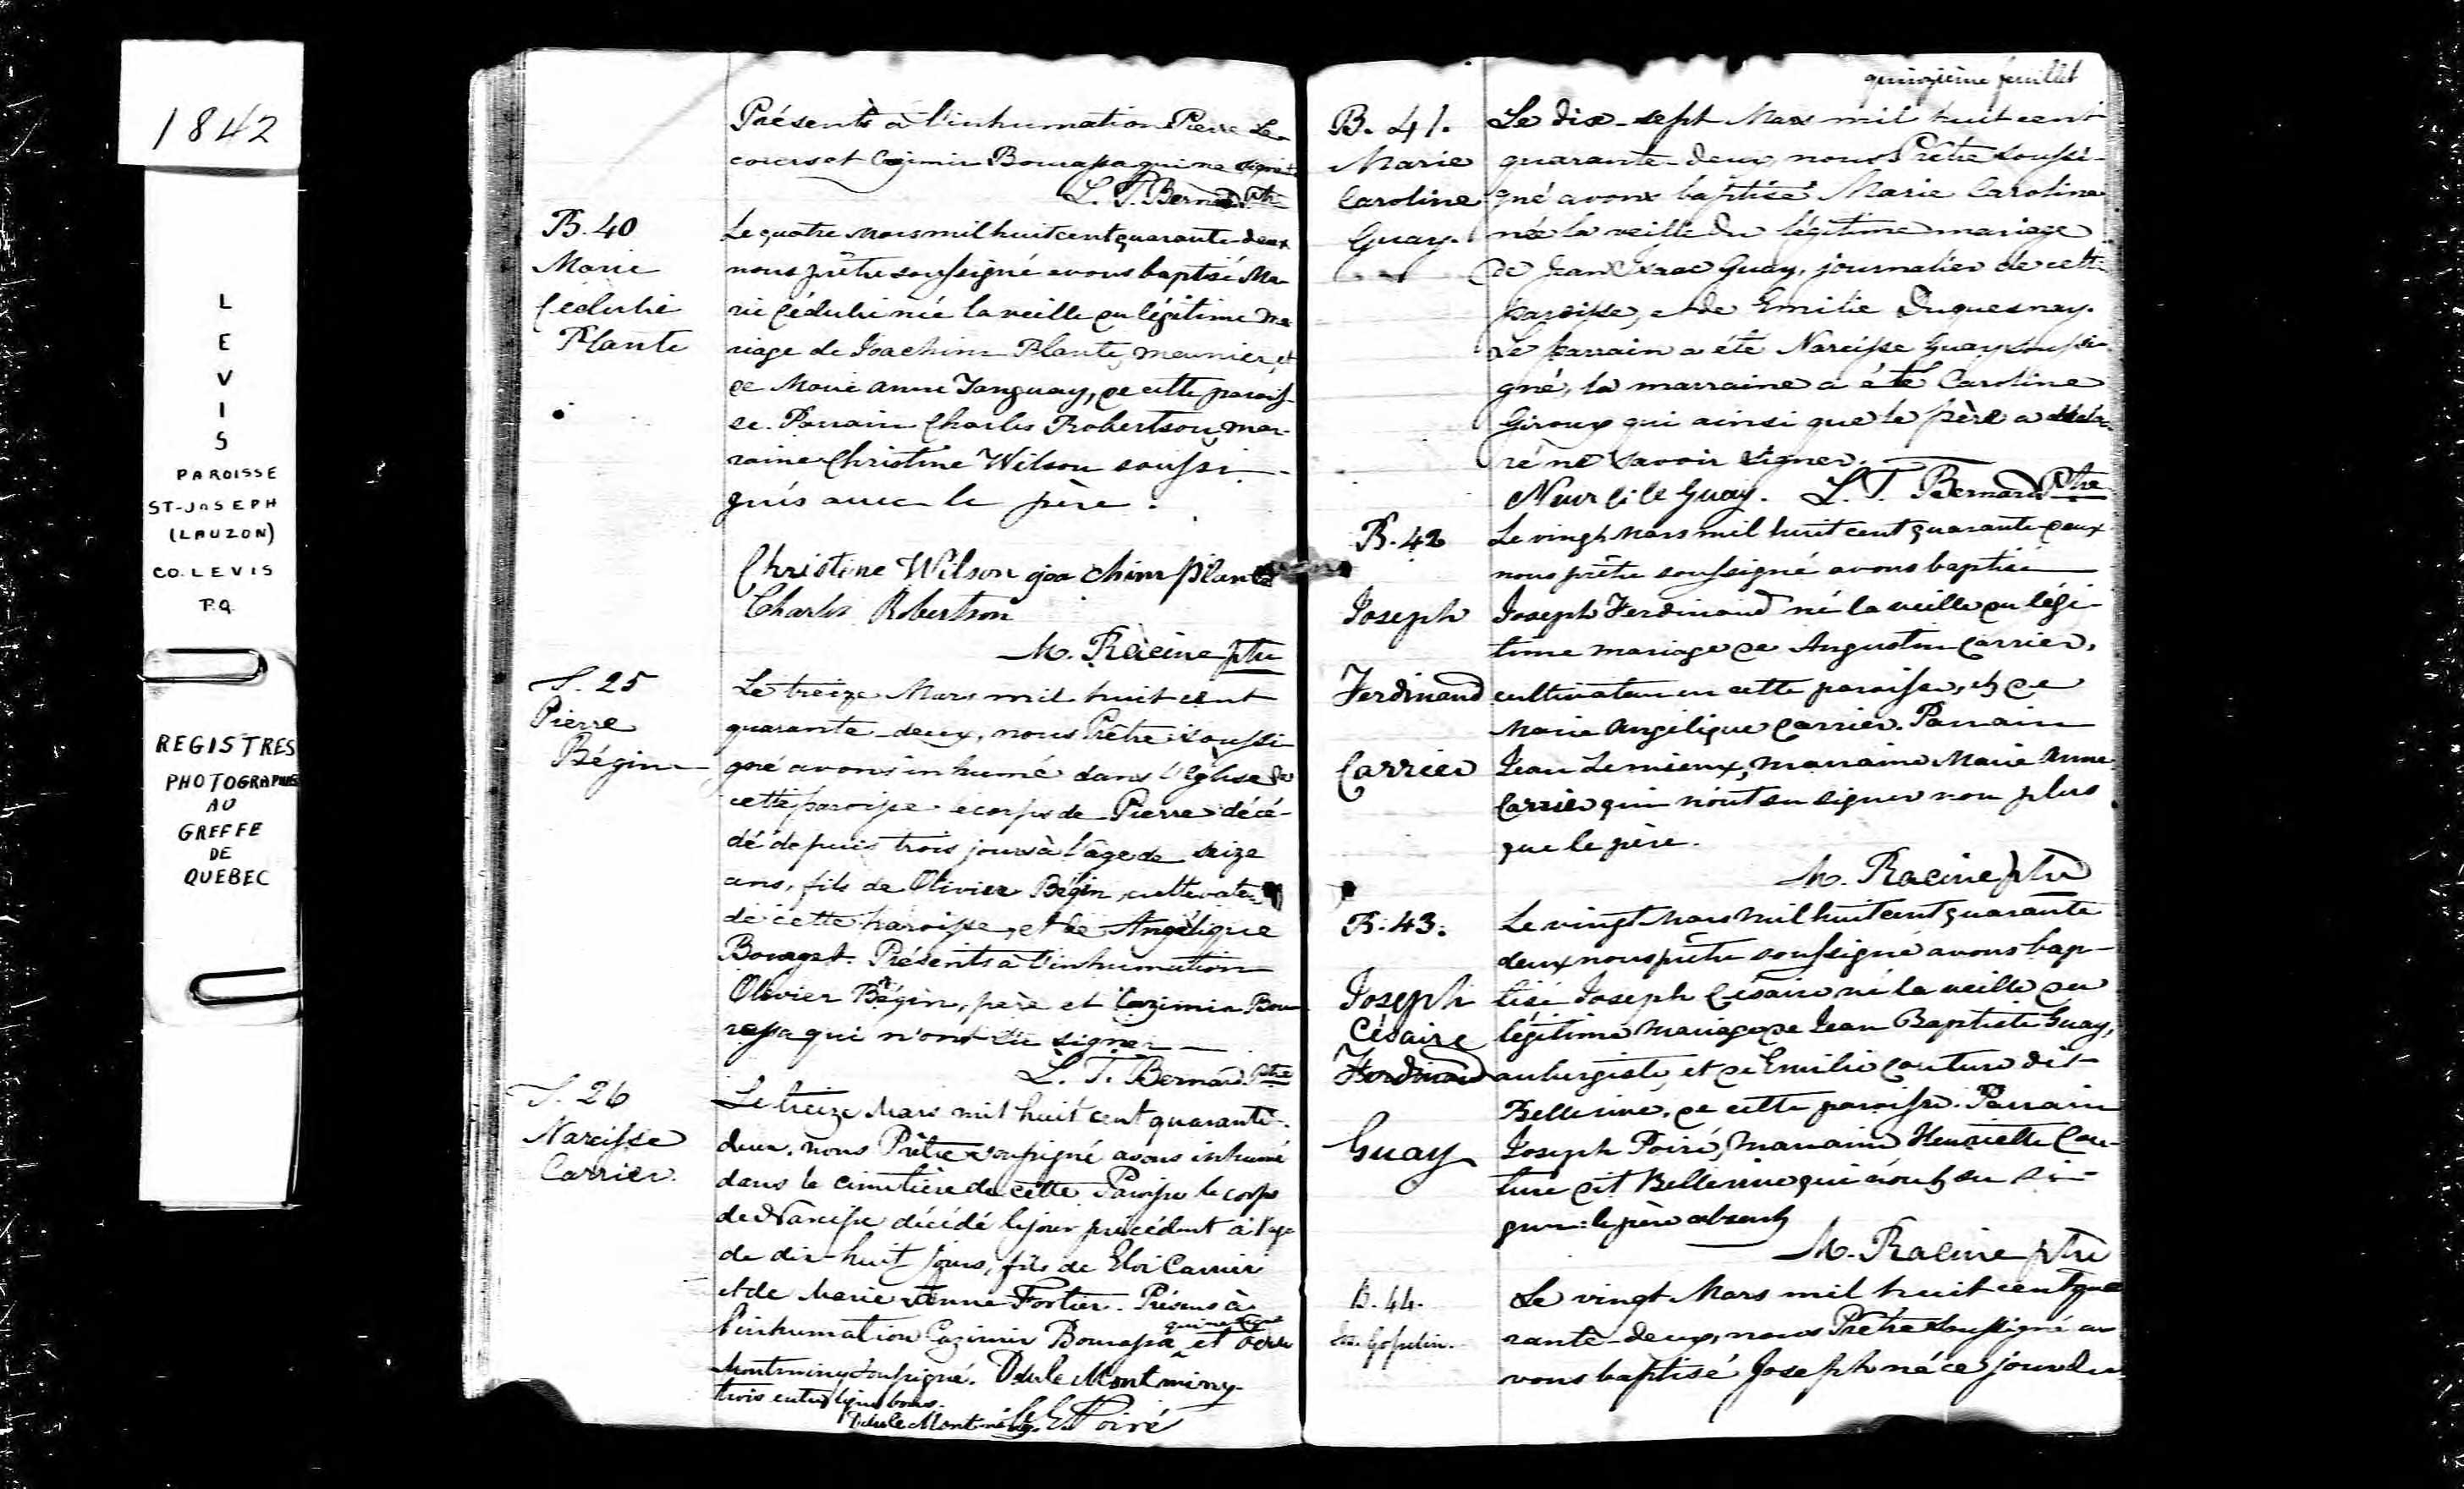 1842
L
E
V
I
S
PAROISSE
ST-JOSEPH
(LAUZON)
CO. LEVIS
P.Q.
REGISTRES
PHOTOGRAPHIES
AU
GREFFE
DE
QUEBEC
Présents à l'inhumation Pierre Le-
cours et Cazimir Bourassa qui ne signent
L. T. Bernard Ptre
B. 40
Marie
Cédulie
Plante
Le quatre Mars mil huit cent quarante deux
nous prêtre soussigné avons baptisé Ma-
rie Cédulie née la veille du légitime ma
riage de Joachim Plante, meunier, et
de Marie Anne Tanguay, de cette parois-
se. Parrain Charles Robertson, mar-
raine Christine Wilson soussi-
gnés avec le père.
Christine Wilson joa chim plante
Charles Robertson
M. Racine ptre
S. 25
Pierre
Bégin
Le treize Mars mil huit cent
quarante-deux, nous Prêtre soussi
gné avons inhumé dans l'Eglise de
cette paroisse le corps de Pierre décé-
dé depuis trois jours à l'âge de seize
ans, fils de Olivier Bégin, cultivateur
de cette paroisse, et de Angélique
Bourget. Présents à l'inhumation
Olivier Bégin, père et Cazimir Bou
rassa qui n'ont su signer
L. T. Bernard Ptre
S. 26
Narcisse
Carrier.
Le treize Mars mil huit cent quarante-
deux, nous Prêtre soussigné avons inhumé
dans le cimetière de cette Paroisse le corps
de Narcisse décédé le jour précédent à l'age
de dix-huit jours, fils de Eloi Carrier
et de Marie Anne Fortier. Présens à
l'inhumation Cazimir Bourassa qui ne signe et
Montminy soussigné. Montminy
trois entre ligne bons.
Poiré
quinzième feuillet
B. 41.
Marie
Caroline
Guay.
Le dix-sept Mars mil huit cent
quarante-deux, nous Prêtre soussi-
gné avons baptisé Marie Caroline
née la veille du légitime mariage
de Jean Isaac Guay, journalier de cette
paroisse, et de Emilie Duquesnay.
Le parrain a été Narcisse Guay soussi-
gné, la marraine a été Caroline
Giroux qui ainsi que le père a décla-
ré ne savoir signer.
Guay. L. T. Bernard Ptre
B. 42
Joseph
Ferdinand
Carrier
Le vingt Mars mil huit cent quarante deux
nous prêtre soussigné avons baptisé
Joseph Ferdinand né la veille du légi-
time mariage de Augustin Carrier,
cultivateur en cette paroisse, et de
Marie Angélique Carrier. Parrain
Jean Lemieux, marraine Marie Anne
Carrier qui n'ont su signer non plus
que le père.
M. Racine ptre
B. 43.
Joseph
Césaire
Ferdinand
Guay
Le vingt Mars mil huit cent quarante
deux nous prêtre soussigné avons bap-
tisé Joseph Césaire né la veille du
légitime mariage de Jean Baptiste Guay,
aubergiste, et de Emilie Couture dit
Bellerive, de cette paroisse. Parrain
Joseph Poiré, marraine Henriette Cou-
ture dit Bellerive qui n'ont su si-
gner: le père absent
M. Racine ptre
B. 44.
Le vingt Mars mil huit cent qua
rante-deux, nous Prêtre soussigné a
vons baptisé Joseph né ce jour du